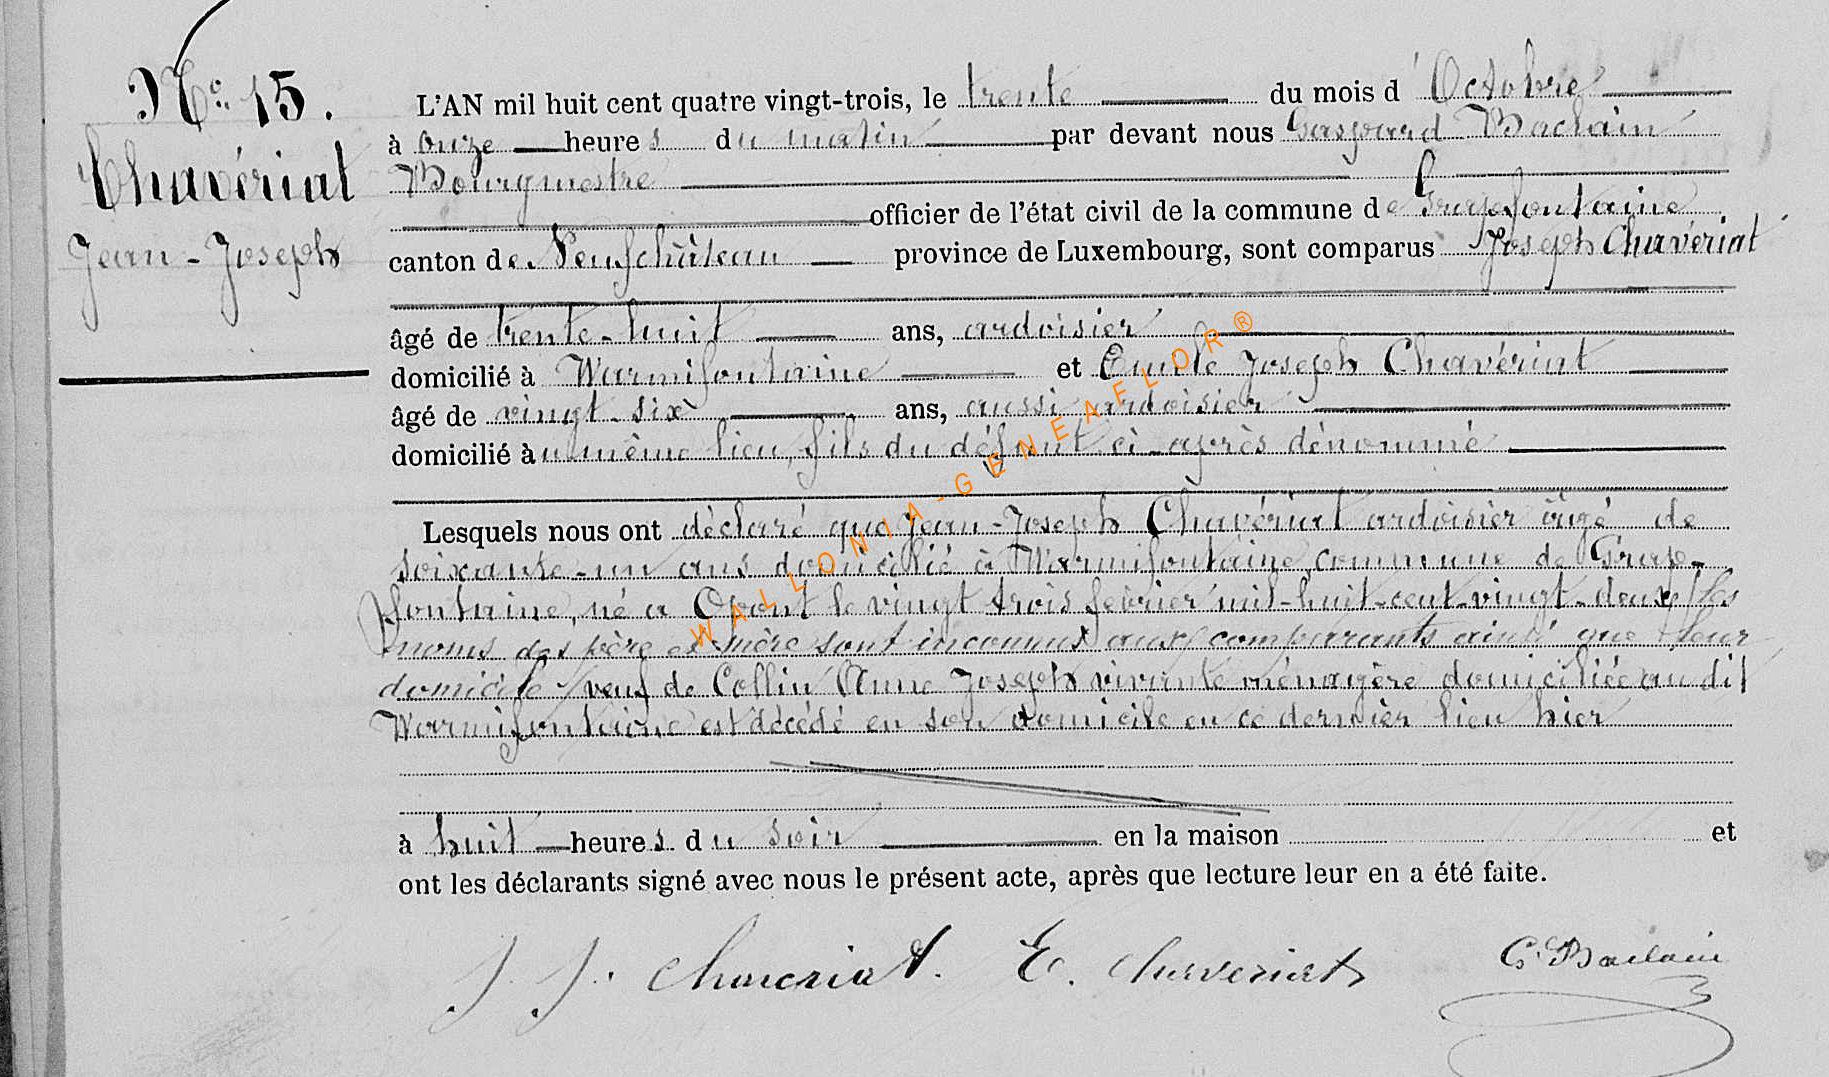 N° 15.
Chavériat
Jean-Joseph
L'AN mil huit cent quatre vingt-trois, le trente du mois d'Octobre
à onze heures du matin par devant nous Gaspard Baclain
Bourgmestre
officier de l'état civil de la commune de Grapfontaine
canton de Neufchâteau province de Luxembourg, sont comparus Joseph Chavériat
âgé de trente-huit ans, ardoisier
domicilié à Warmifontaine et Emile Joseph Chavériat
âgé de vingt-six ans, aussi ardoisier
domicilié au même lieu, fils du défunt ci-après dénommé
Lesquels nous ont déclaré que Jean-Joseph Chavériat ardoisier âgé de
soixante-un ans domicilié à Warmifontaine, commune de Grap-
fontaine, né a Opont le vingt trois février mil-huit-cent-vingt-deux, les
noms des père et mère sont inconnus aux comparants ainsi que leur
domicile, veuf de Collin Anne Joseph vivante ménagère domiciliée au dit
Warmifontaine est décédé en son domicile en ce dernier lieu hier
à huit heures du soir en la maison et
ont les déclarants signé avec nous le présent acte, après que lecture leur en a été faite.
J. J. Chaveriat. E. Chaveriat G. Baclain
WALLONIA-GENEAFLOR®